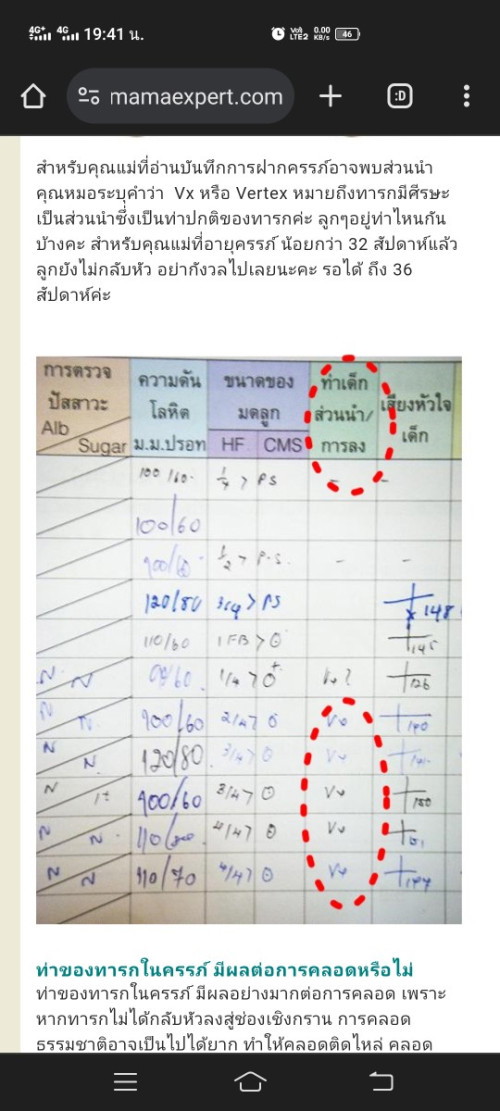 19:41 น.
46
mamaexpert.com
สำหรับคุณแม่ที่อ่านบันทึกการฝากครรภ์อาจพบส่วนนำ
คุณหมอระบุคำว่า Vx หรือ Vertex หมายถึงทารกมีศีรษะ
เป็นส่วนนำซึ่งเป็นท่าปกติของทารกค่ะ ลูกๆอยู่ท่าไหนกัน
บ้างคะ สำหรับคุณแม่ที่อายุครรภ์ น้อยกว่า 32 สัปดาห์แล้ว
ลูกยังไม่กลับหัว อย่ากังวลไปเลยนะคะ รอได้ ถึง 36
สัปดาห์ค่ะ
การตรวจ ปัสสาวะ Alb Sugar
ความดัน โลหิต ม.ม.ปรอท
ขนาดของ มดลูก HF CMS
ท่าเด็ก ส่วนนำ/ การลง
เสียงหัวใจ เด็ก
100/60 1/4 > PS - -
100/60
1/2 > P.S. - -
120/80 3/4 > PS 148
110/60 1FB > 0 145
N N 1/4 > 0 Vx? 126
N N 100/60 2/4 > 0 Vx 140
N N 120/80 3/4 > 0 Vx
N 1+ 100/60 3/4 > 0 Vx 150
N N 4/4 > 0 Vx
N N 110/70 4/4 > 0 Vx 144
ท่าของทารกในครรภ์ มีผลต่อการคลอดหรือไม่
ท่าของทารกในครรภ์ มีผลอย่างมากต่อการคลอด เพราะ
หากทารกไม่ได้กลับหัวลงสู่ช่องเชิงกราน การคลอด
ธรรมชาติอาจเป็นไปได้ยาก ทำให้คลอดติดไหล่ คลอด